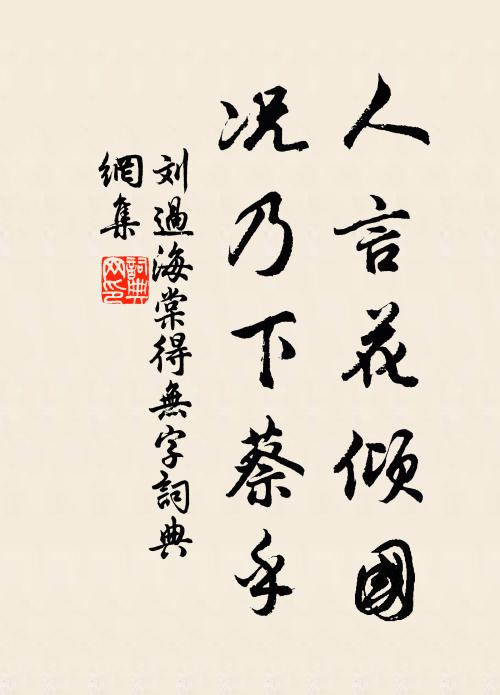 人言花倾國
况乃下蔡乎
刘過海棠得無字詞典
網集
詞典網印